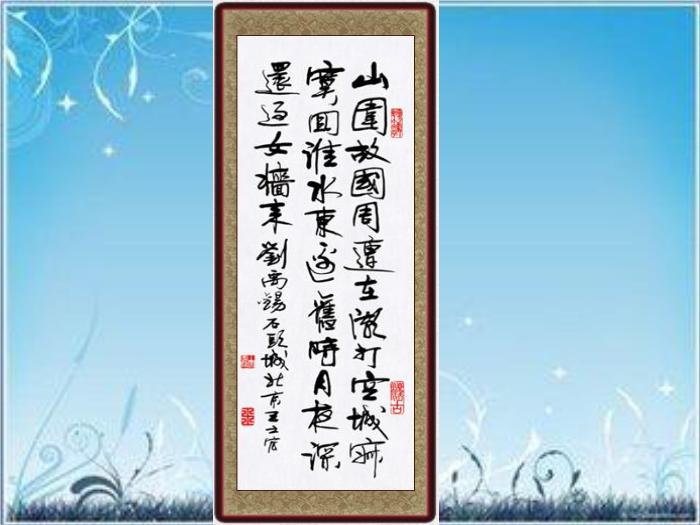 山圍故國周遭在潮打空城寂
寞回淮水東邊舊時月夜深
還過女墻来劉禹錫石頭城北京王立